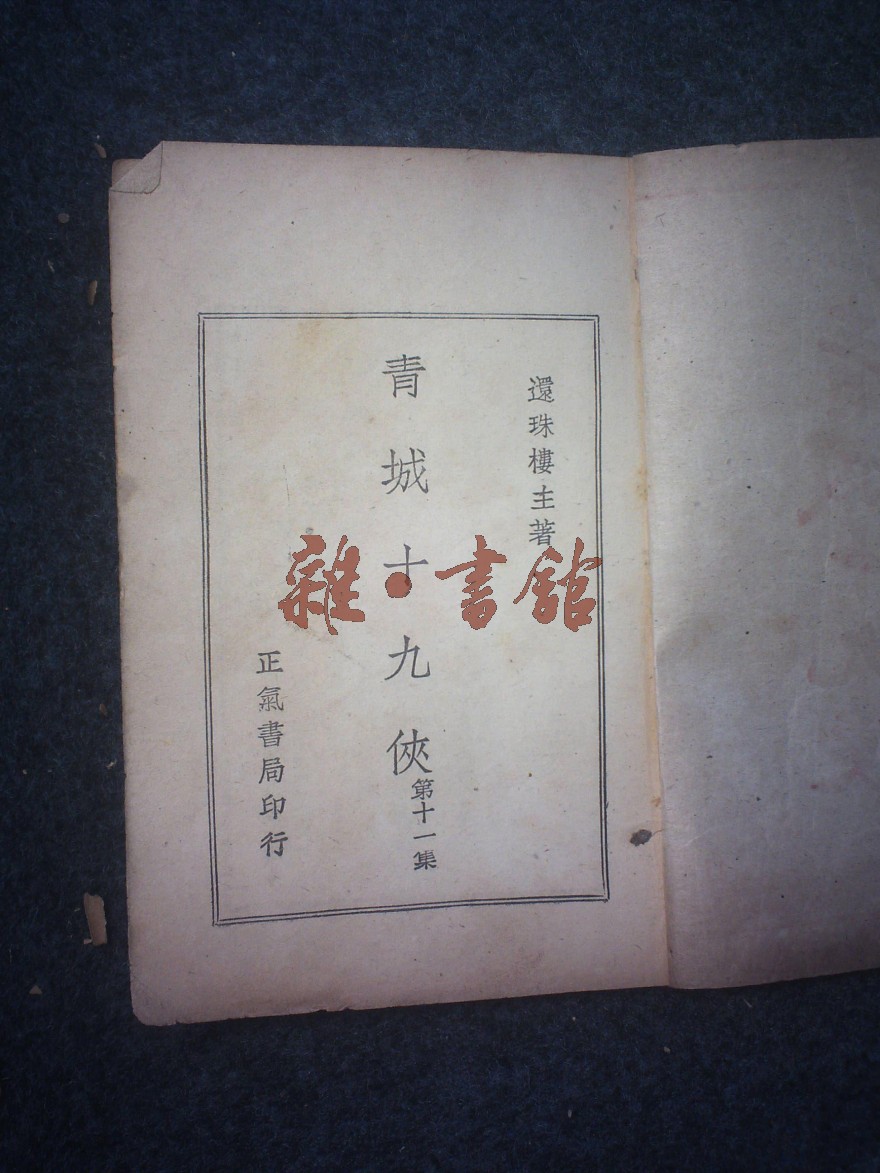 還珠樓主著
青城十九俠
第十一集
正氣書局印行
雜·書舘